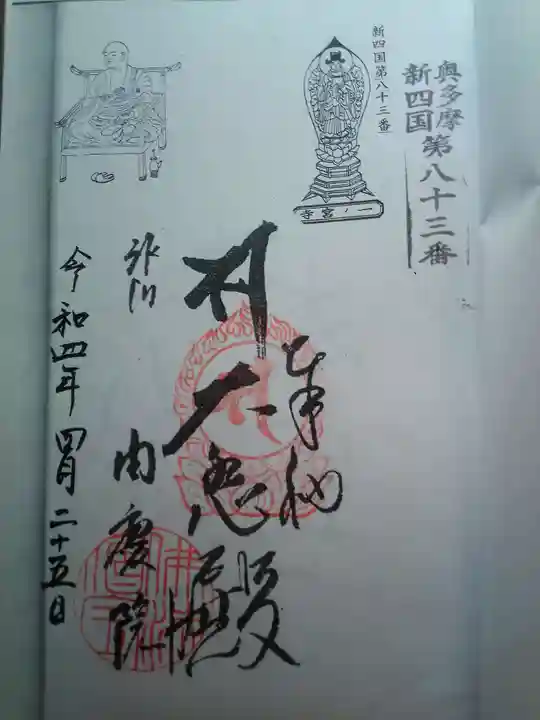 奥多摩
新四国第八十三番
新四国第八十三番
一ノ宮寺
奉納
大悲殿
氷川
由慶院
令和四年四月二十五日